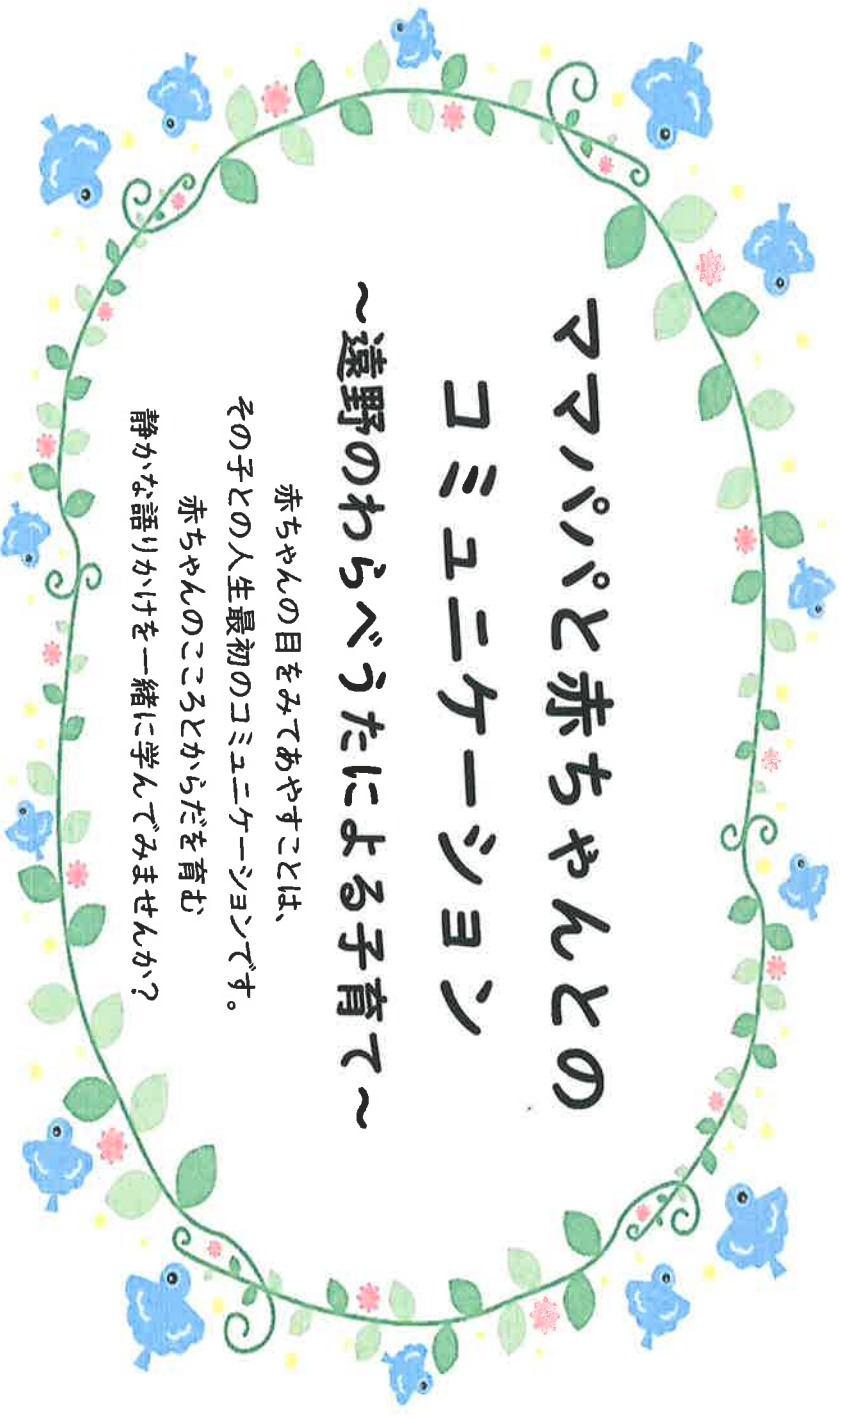 ママパパと赤ちゃんとの
コミュニケーション
～遠野のわらべうたによる子育て～
赤ちゃんの目をみてあやすことは、
その子との人生最初のコミュニケーションです。
赤ちゃんのこころとからだを育む
静かな語りかけを一緒に学んでみませんか？